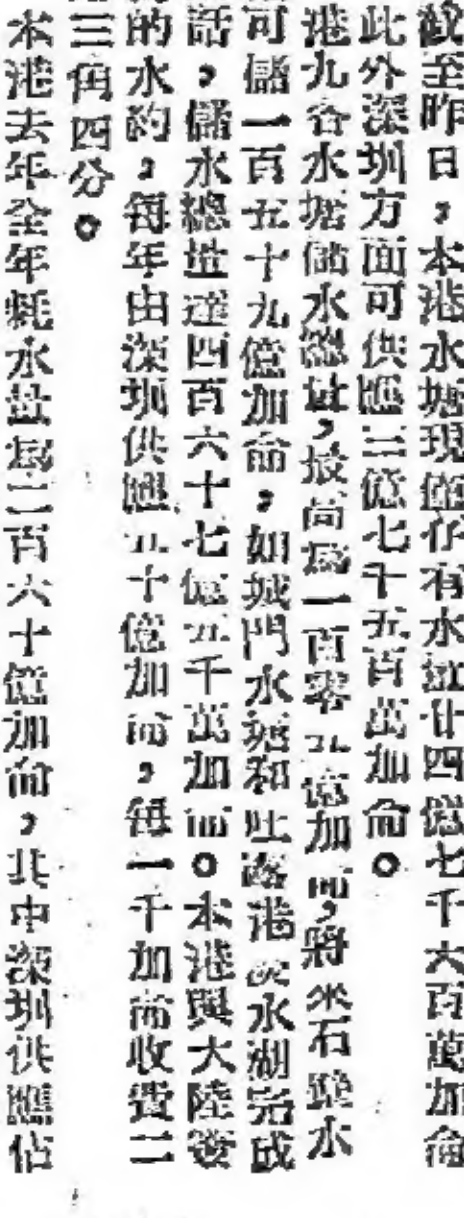 截至昨日，本港水塘現僅存有水量廿四億七千六百萬加侖
此外深圳方面可供應三億七千五百萬加侖。
港九各水塘儲水總量，最高爲一百零五億加侖，將來石壁水
可儲一百五十九億加侖，如城門水塘和吐露港淡水湖完成
話，儲水總量達四百六十七億五千萬加侖。本港與大陸簽
的水約，每年由深圳供應五十億加侖，每一千加侖收費二
三角四分。
本港去年全年耗水量爲二百六十億加侖，其中深圳供應佔